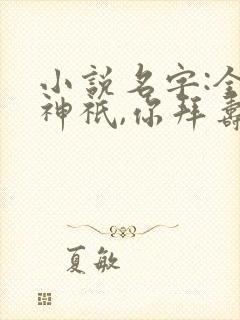 小說名字:全
神祇,你拜壽
夏敏